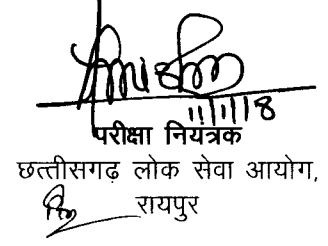 11/1/18
परीक्षा नियंत्रक
छत्तीसगढ़ लोक सेवा आयोग,
रायपुर